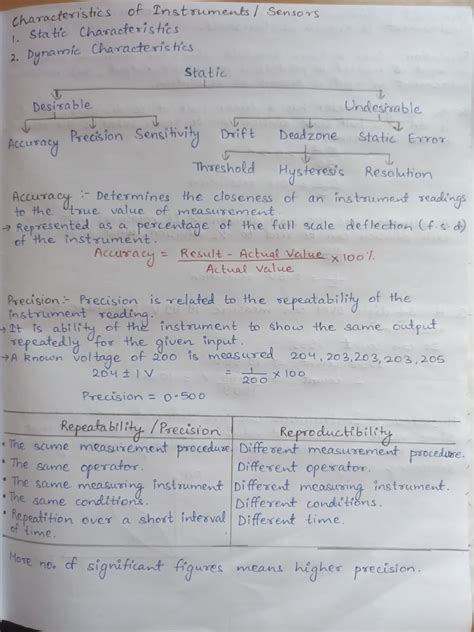 Characteristics of Instruments/ Sensors
1. Static Characteristics
2. Dynamic Characteristics
Static
Desirable Undesirable
Accuracy Precision Sensitivity Drift Deadzone Static Error
Threshold Hysteresis Resolution
Accuracy :- Determines the closeness of an instrument readings
to the true value of measurement.
→ Represented as a percentage of the full scale deflection (f.s.d)
of the instrument.
Accuracy = Result - Actual Value / Actual Value × 100%
Precision:- Precision is related to the repeatability of the
instrument reading.
→ It is ability of the instrument to show the same output
repeatedly for the given input.
→ A known voltage of 200 is measured 204, 203, 203, 203, 205
204 ± 1 V = 1/200 × 100
Precision = 0.500
Repeatability / Precision Reproductibility
• The same measurement procedure. Different measurement procedure.
• The same operator. Different operator.
• The same measuring instrument Different measuring instrument.
• The same conditions. Different conditions.
• Repetition over a short interval Different time.
of time.
More no. of significant figures means higher precision.